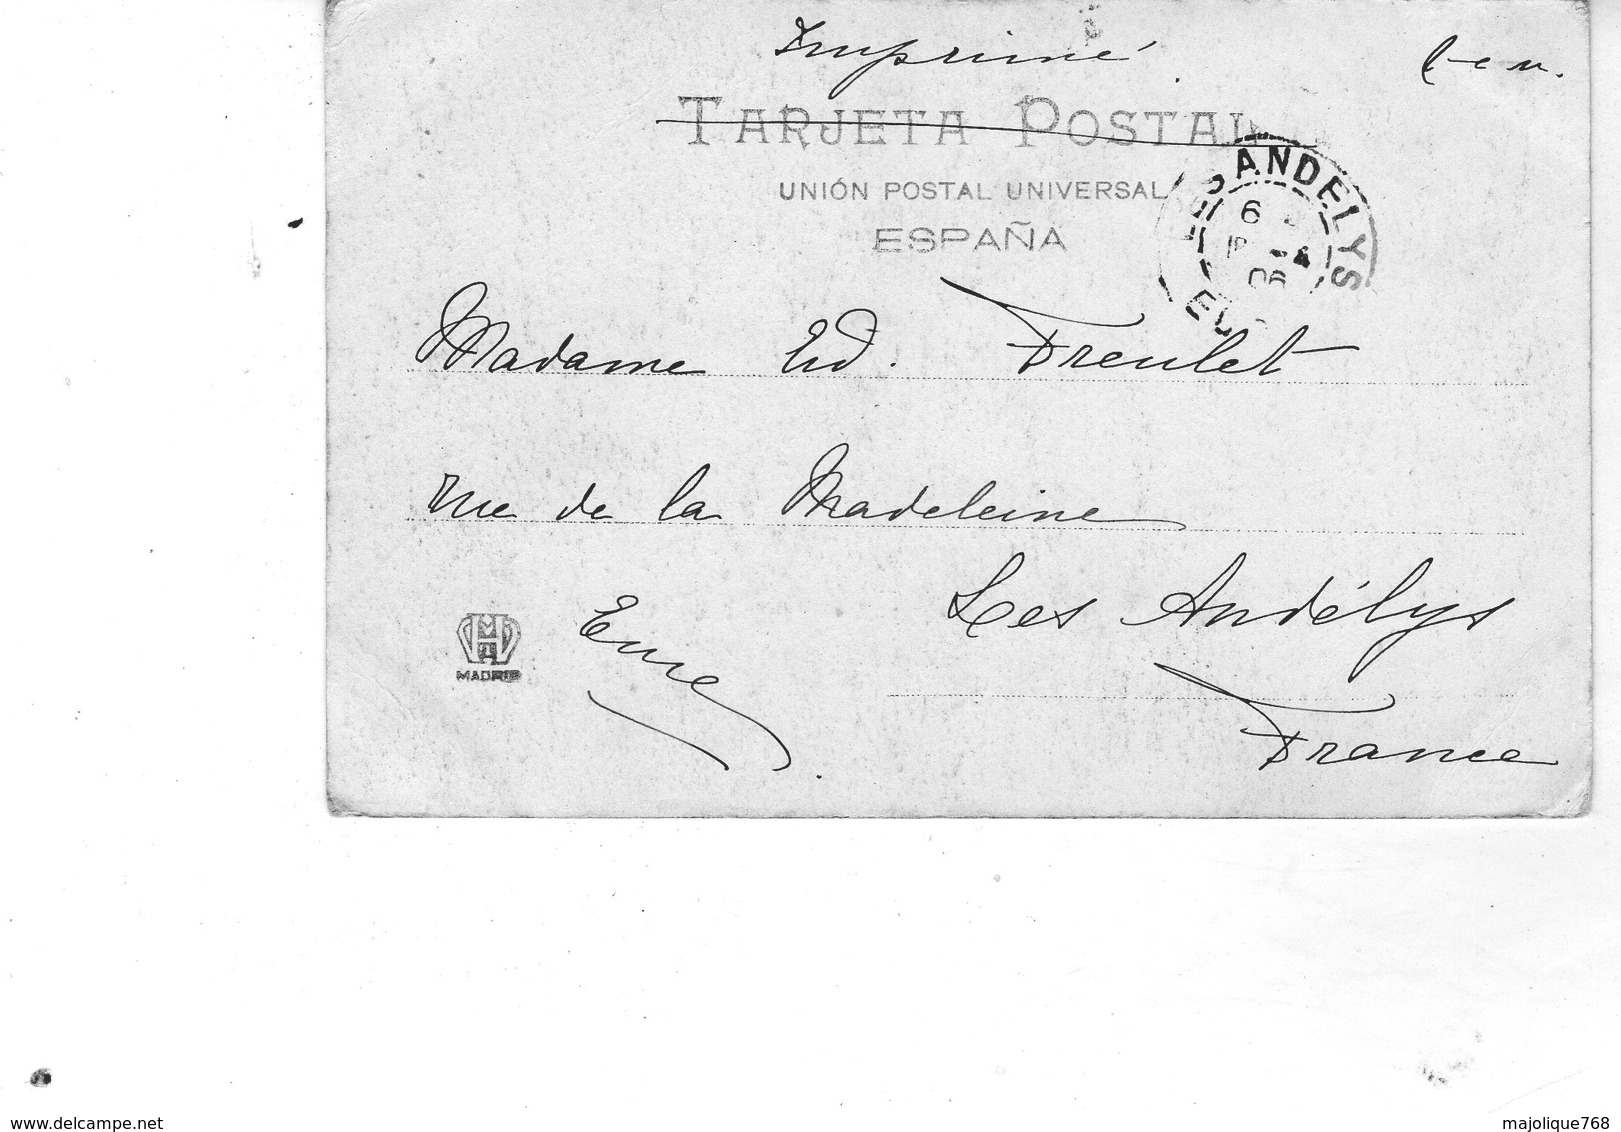 Imprimé
TARJETA POSTAL
UNIÓN POSTAL UNIVERSAL
ESPAÑA
ANDELYS
6
06
Madame Ed. Treulet
rue de la Madeleine
Les Andélys
Eure
France
MADRID
www.delcampe.net
majolique768